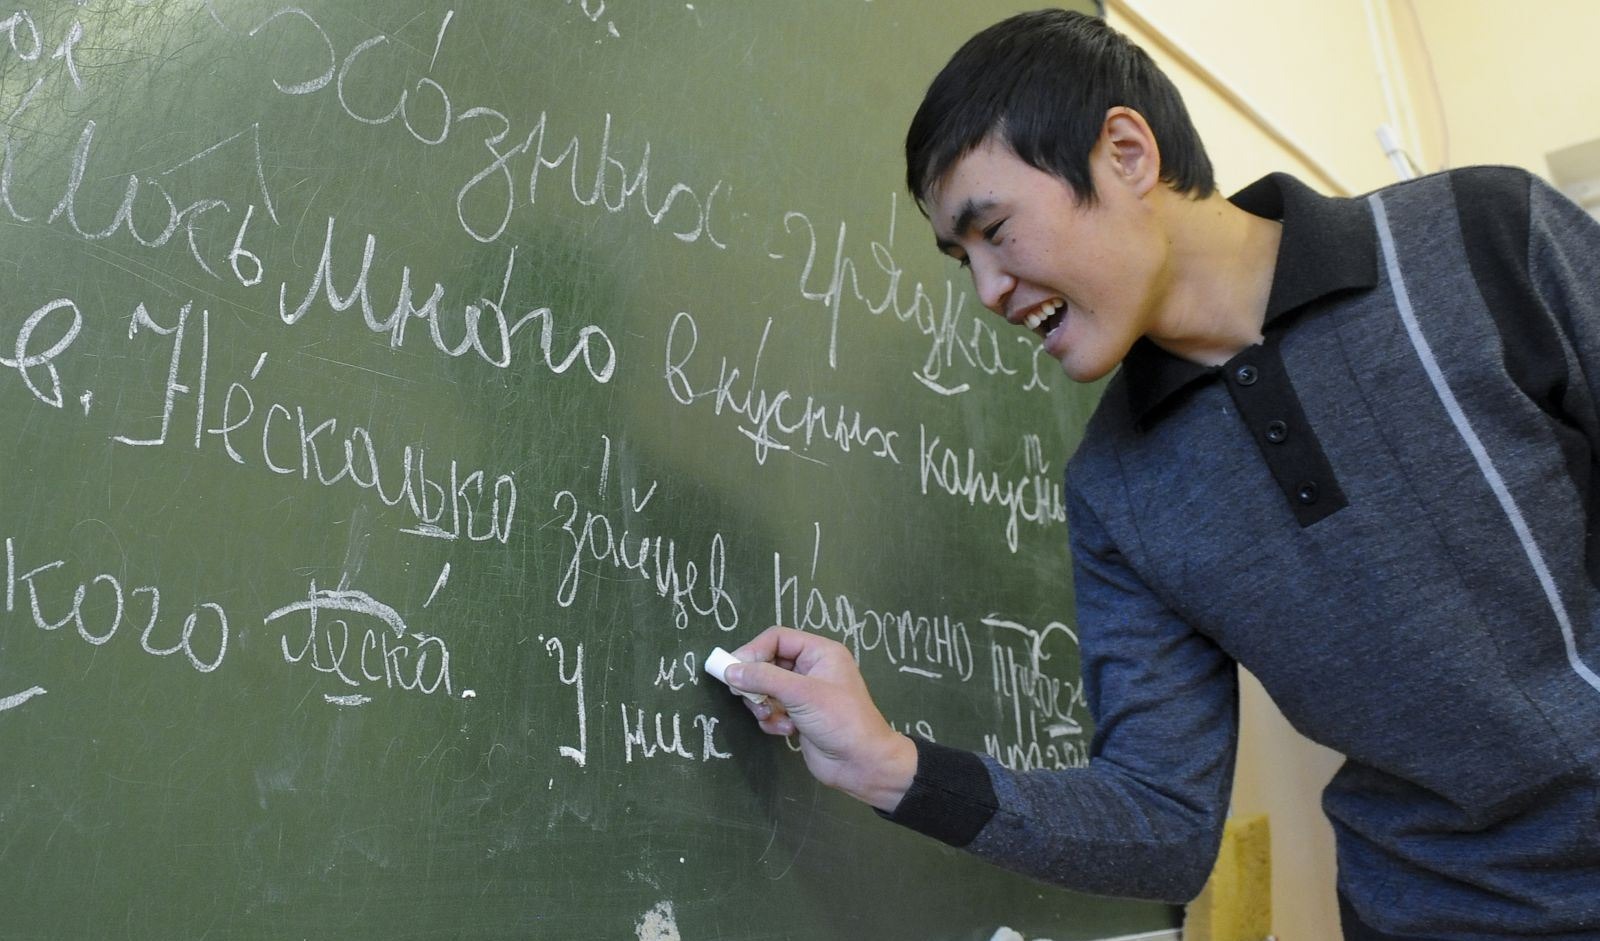 хо́зных - гря́дках
лось мно́го вку́сных капустны
в. Не́сколько за́йцев ра́достно прибеж
кого леска́. У них